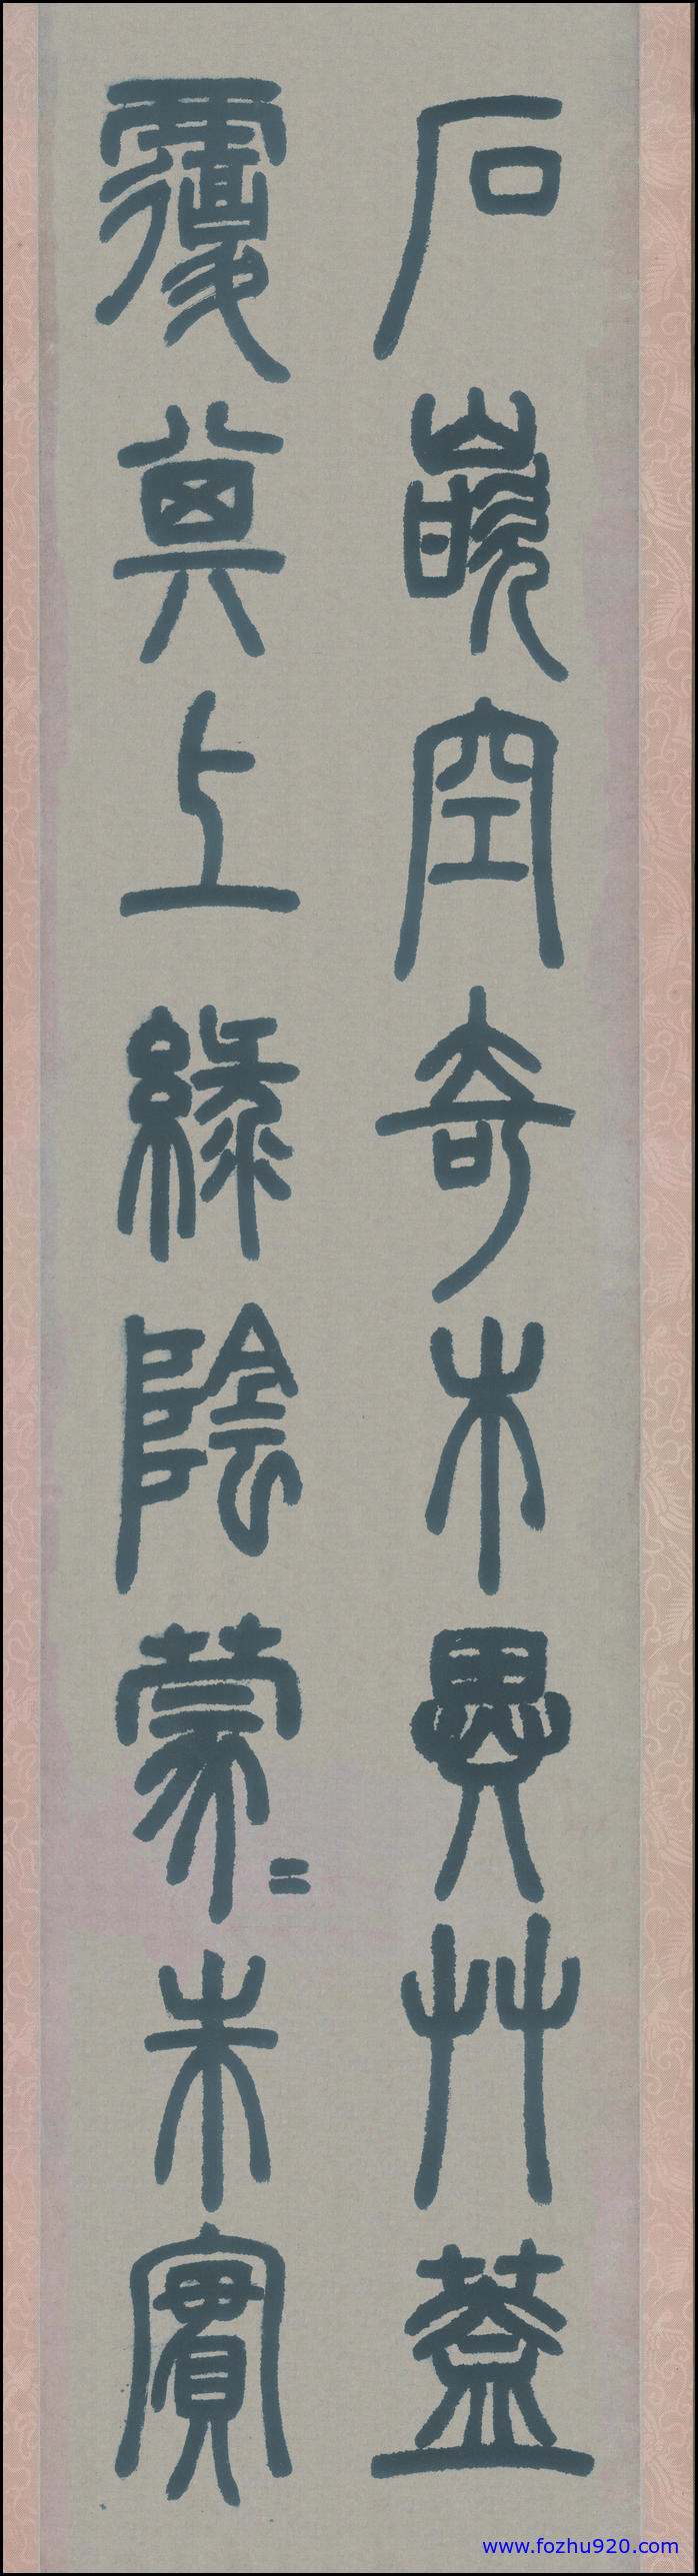 石嵌空奇木異艸蓋
覆其上綠陰蒙〻朱實
www.fozhu920.com